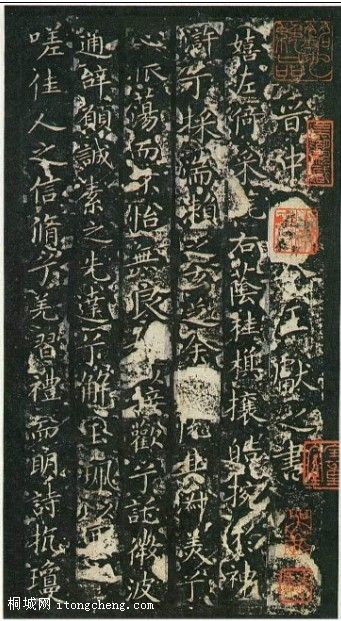 晉中令王獻之書
嬉左倚采旄右蔭桂旗攘皓捥於神
滸兮採湍瀨之玄芝余悅其淑美兮
心振蕩而不怡無良接歡兮託微波
通辭願誠素之先達兮解玉珮以
嗟佳人之信脩兮羌習禮而明詩抗瓊
桐城网 itongcheng.com